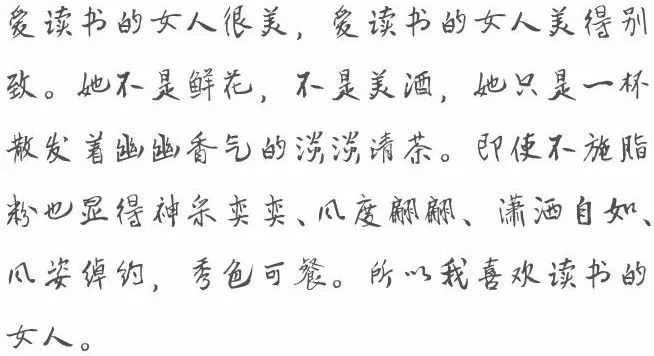 爱读书的女人很美，爱读书的女人美得别
致。她不是鲜花，不是美酒，她只是一杯
散发着幽幽香气的淡淡清茶。即使不施脂
粉也显得神采奕奕、风度翩翩、潇洒自如、
风姿绰约，秀色可餐。所以我喜欢读书的
女人。